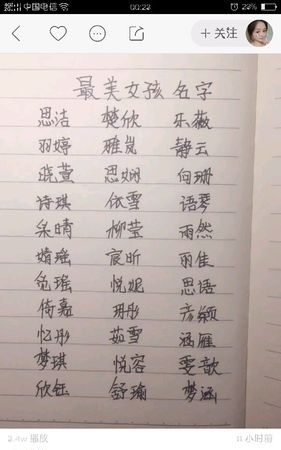 中国电信 00:22 22%
+关注
最美女孩名字
思洁 楚欣 乐薇
羽婷 雅岚 静云
晓萱 思娴 向珊
诗琪 依雪 语琴
采晴 柳莹 雨然
婧瑶 宸昕 雨佳
悦妮 思语
倚嘉 玥彤 彦颖
忆彤 茹雪 涵雁
梦琪 悦容 雯歆
欣钰 舒瑜 梦涵
2.4w 播放 11小时前